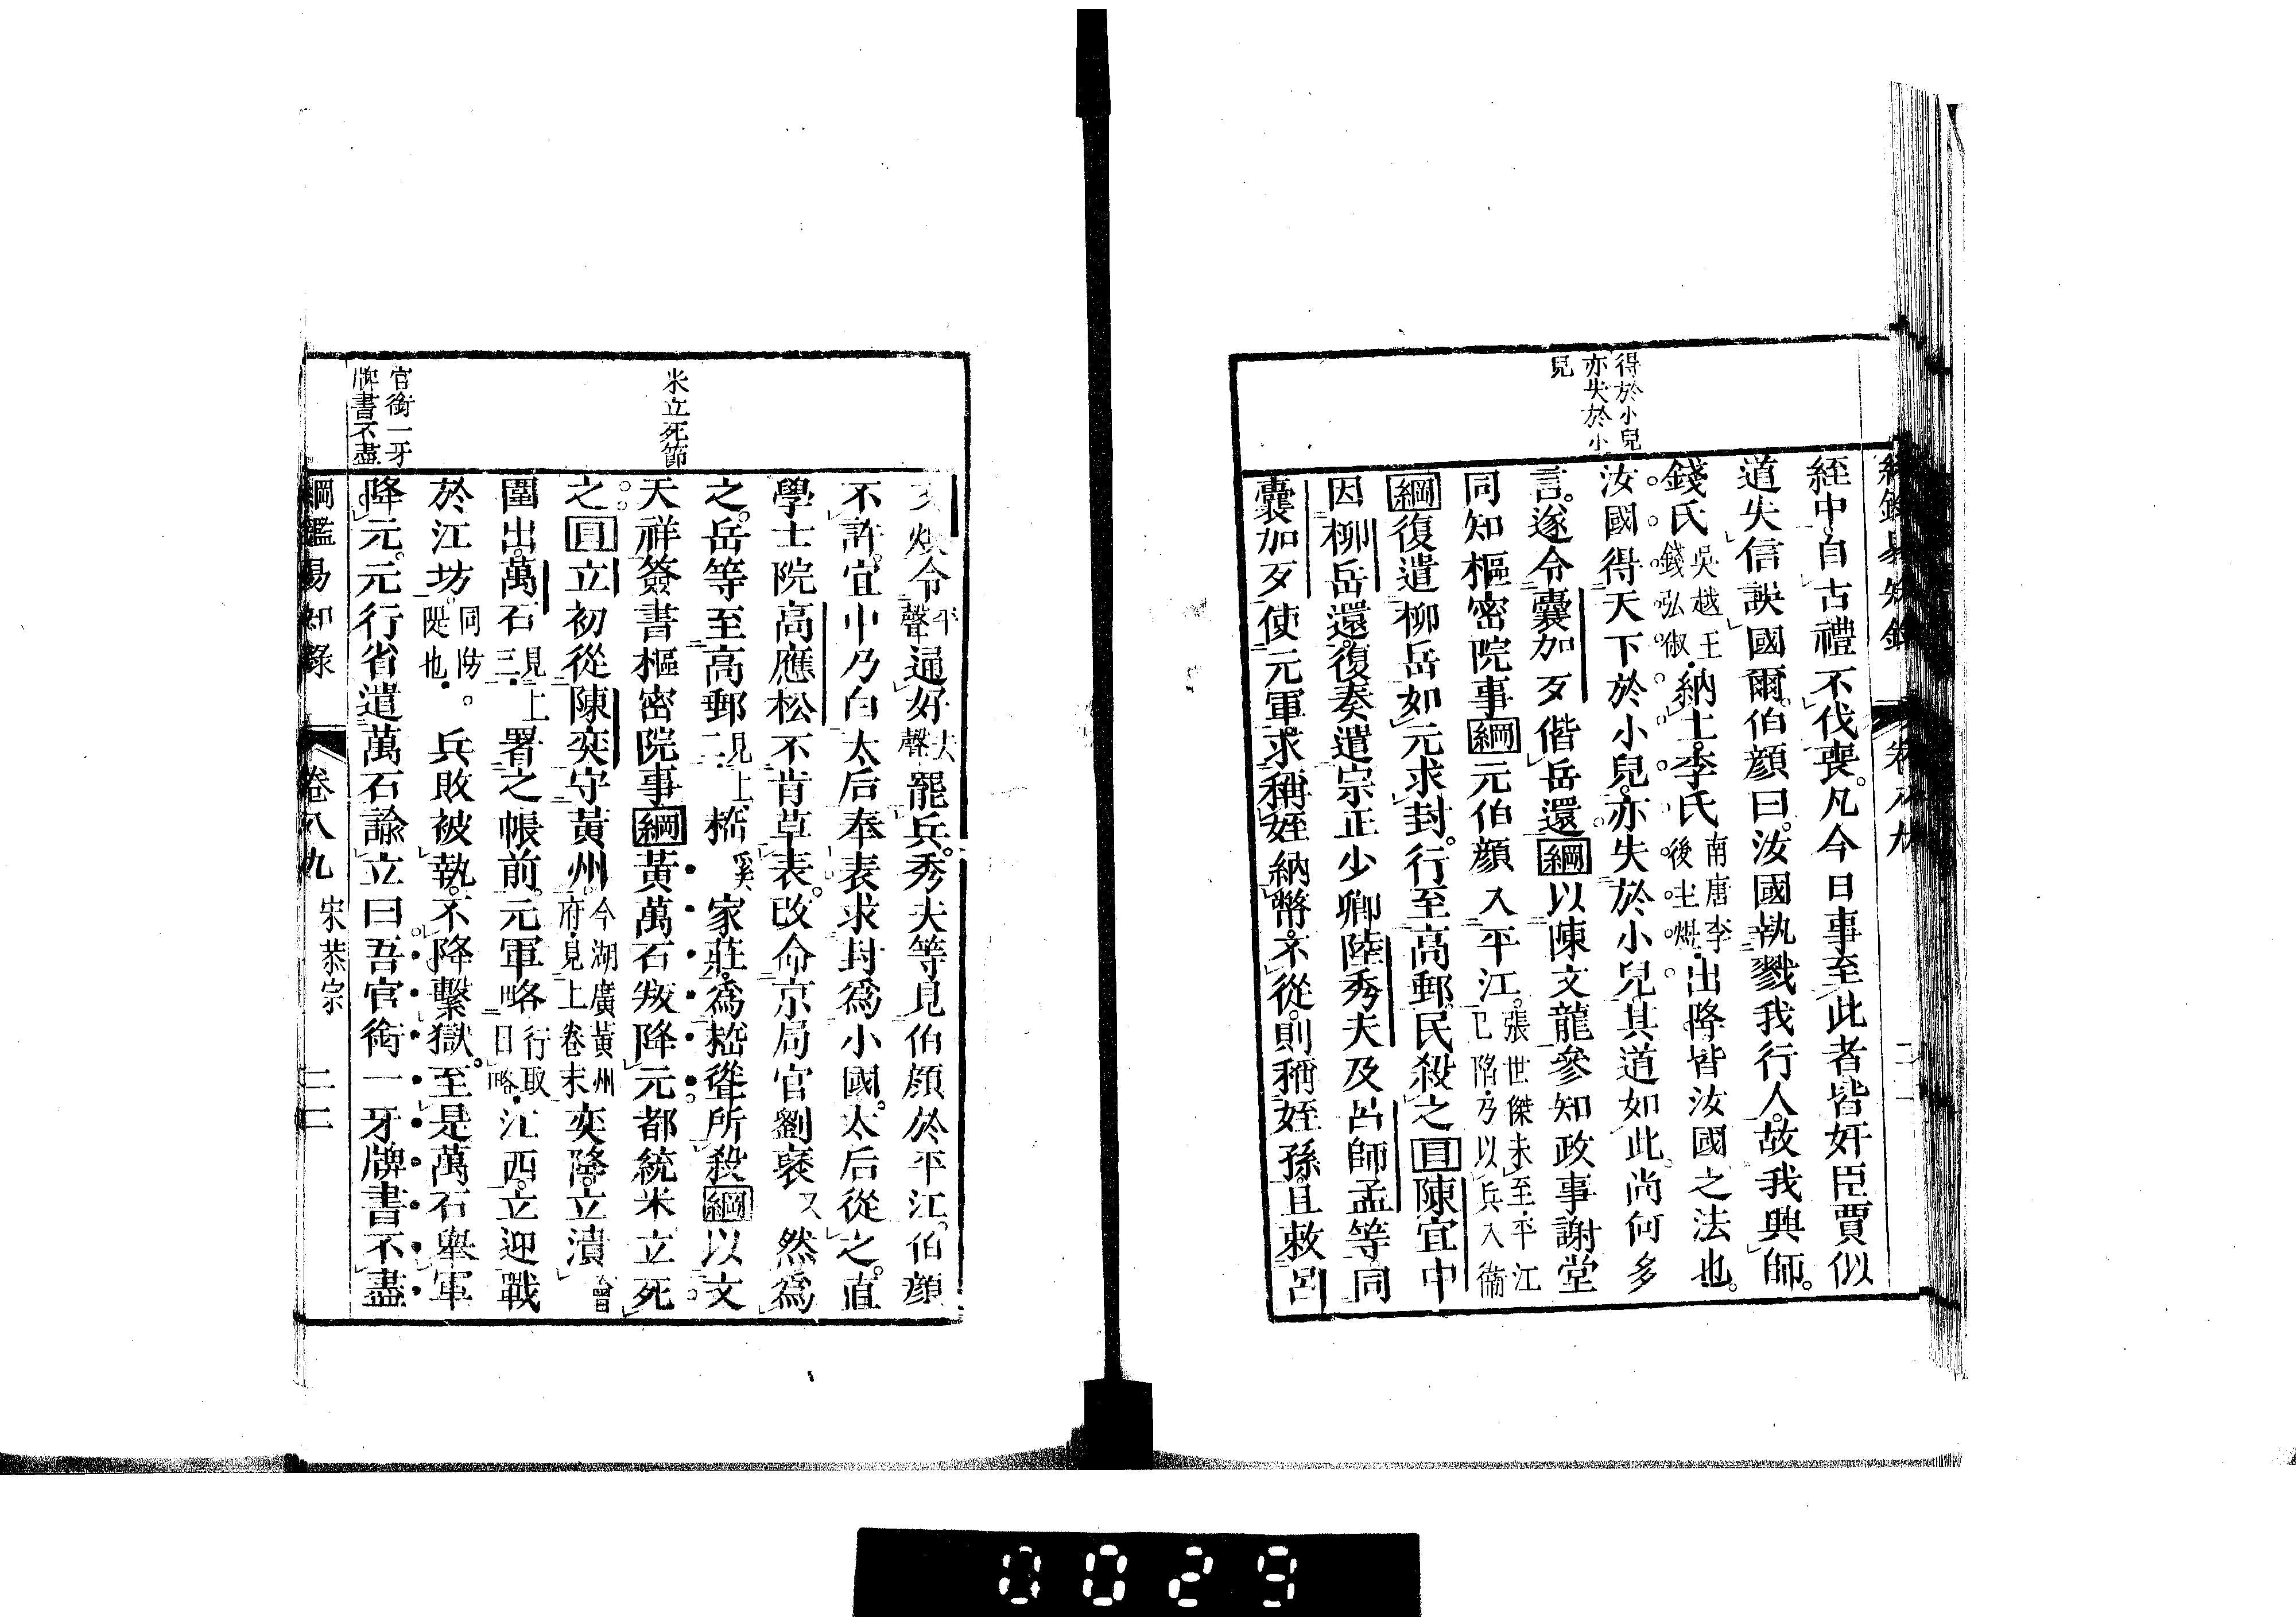 得於小兒
亦失於小
兒
絰中自古禮不伐喪凡今日事至此者皆奸臣賈似
道失信誤國爾伯顏曰汝國執戮我行人故我興師
錢氏吳越王錢弘俶納土李氏南唐李後主煜出降皆汝國之法也
汝國得天下於小兒亦失於小兒其道如此尚何多
言遂令囊加歹偕岳還綱以陳文龍參知政事謝堂
同知樞密院事綱元伯顏入平江張世傑未至平江已陷乃以兵入衞
綱復遣柳岳如元求封行至高郵民殺之目陳宜中
因柳岳還復奏遣宗正少卿陸秀夫及呂師孟等同
囊加歹使元軍求稱姪納幣不從則稱姪孫且敕呂
令平聲通好去聲罷兵秀夫等見伯顏於平江伯顏
不許宜中乃白太后奉表求封爲小國太后從之直
學士院高應松不肯草表改命京局官劉褎又然爲
之岳等至高郵見上二嵇奚家莊爲嵇聳所殺綱以文
天祥簽書樞密院事綱黃萬石叛降元都統米立死
之目立初從陳奕守黃州今湖廣黃州府見上卷末奕降立潰會
圍出萬石見上三署之帳前元軍略行取曰略江西立迎戰
於江坊同防隄也兵敗被執不降繫獄至是萬石舉軍
降元元行省遣萬石諭立曰吾官銜一牙牌書不盡
米立死節
官銜一牙
牌書不盡
綱鑑易知錄 卷八九 宋恭宗 二二
0029